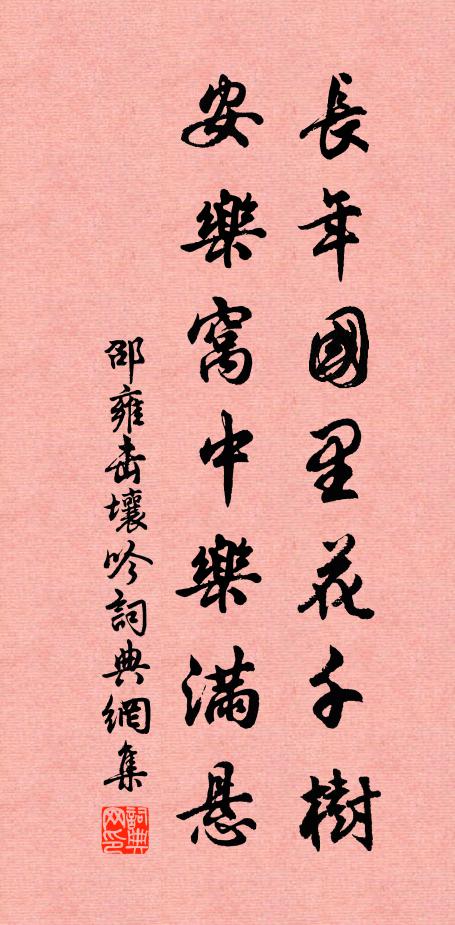 長年國里花千樹
安樂窩中樂滿懸
邵雍擊壤吟詞典網集
詞典网印